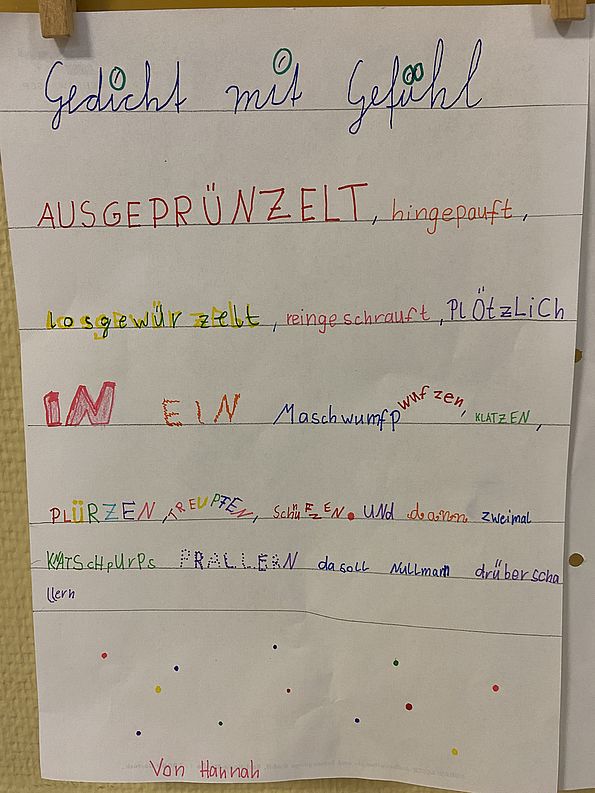 Gedicht mit Gefühl
AUSGEPRÜNZELT, hingepauft,
losgewürzelt, reingeschrauft, PLÖtzLiCH
IN EIN Maschwumfp wufzen, KLATZEN,
PLÜRZEN, TREUPFEN, SchüFZEN. UNd dann zweimal
KNATSCHPURPS PRALLERN da soll Nullmann drüberscha
llern
Von Hannah